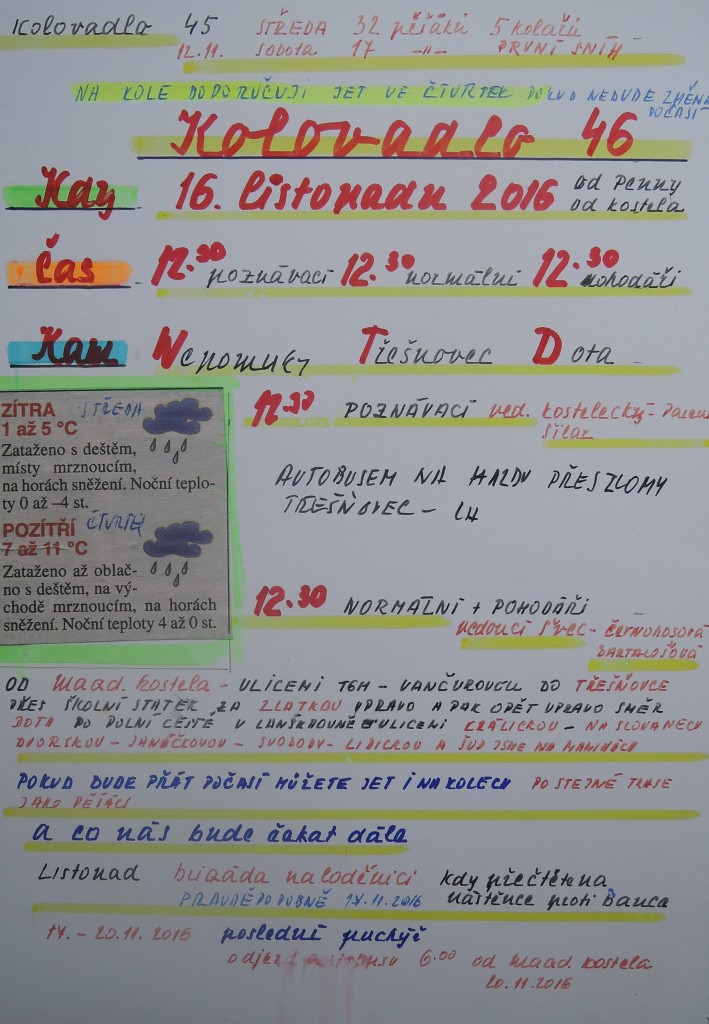 Kolovadlo 45 STŘEDA 32 pěšáků 5 kolařů
12.11. sobota 17 -"- PRVNÍ SNÍH
NA KOLE DOPORUČUJI JET VE ČTVRTEK POKUD NEBUDE ZMĚNA
POČASÍ
Kolovadlo 46
Kdy 16. listopadu 2016 od Penny
od kostela
Čas 12.30 poznávací 12.30 normální 12.30 pohodáři
Kam Nepomuky Třešňovec Dota
ZÍTRA STŘEDA
1 až 5 °C
Zataženo s deštěm,
místy mrznoucím,
na horách sněžení. Noční teplo-
ty 0 až –4 st.
POZÍTŘÍ ČTVRTEK
7 až 11 °C
Zataženo až oblač-
no s deštěm, na vý-
chodě mrznoucím, na horách
sněžení. Noční teploty 4 až 0 st.
12.30 POZNÁVACÍ ved. kostelecký -
Silar
AUTOBUSEM NA HAZDU PŘES ZLOMY
TŘEŠŇOVEC - LA
12.30 NORMÁLNÍ + POHODÁŘI
vedoucí Švec - ČERNOHOSOVÁ
BARTALOŠOVÁ
OD Maad. kostela - ULICEMI TGM - VANČUROVOU DO TŘEŠŇOVCE
PŘES ŠKOLNÍ STATEK ZA ZLATKOU VPRAVO A PAK OPĚT VPRAVO SMĚR
DOTA PO POLNÍ CESTĚ V LANŠKROUNĚ ULICEMI KRÁLICKOU - NA SLOVANECH
DVORSKOU - JANÁČKOVOU - SVOBODY - LIDICKOU A ŠUP JSME NA
POKUD BUDE PŘÁT POČASÍ MŮŽETE JET I NA KOLECH PO STEJNÉ TRASE
JAKO PĚŠÁCI
a co nás bude čekat dále
Listopad brigáda na loděnici kdy přečtěte na
PRAVDĚPODOBNĚ 17.11.2016 nástěnce proti Banca
17. - 20.11.2016 poslední puchýř
odjezd autobusu 6.00 od Maad. kostela
20.11.2016